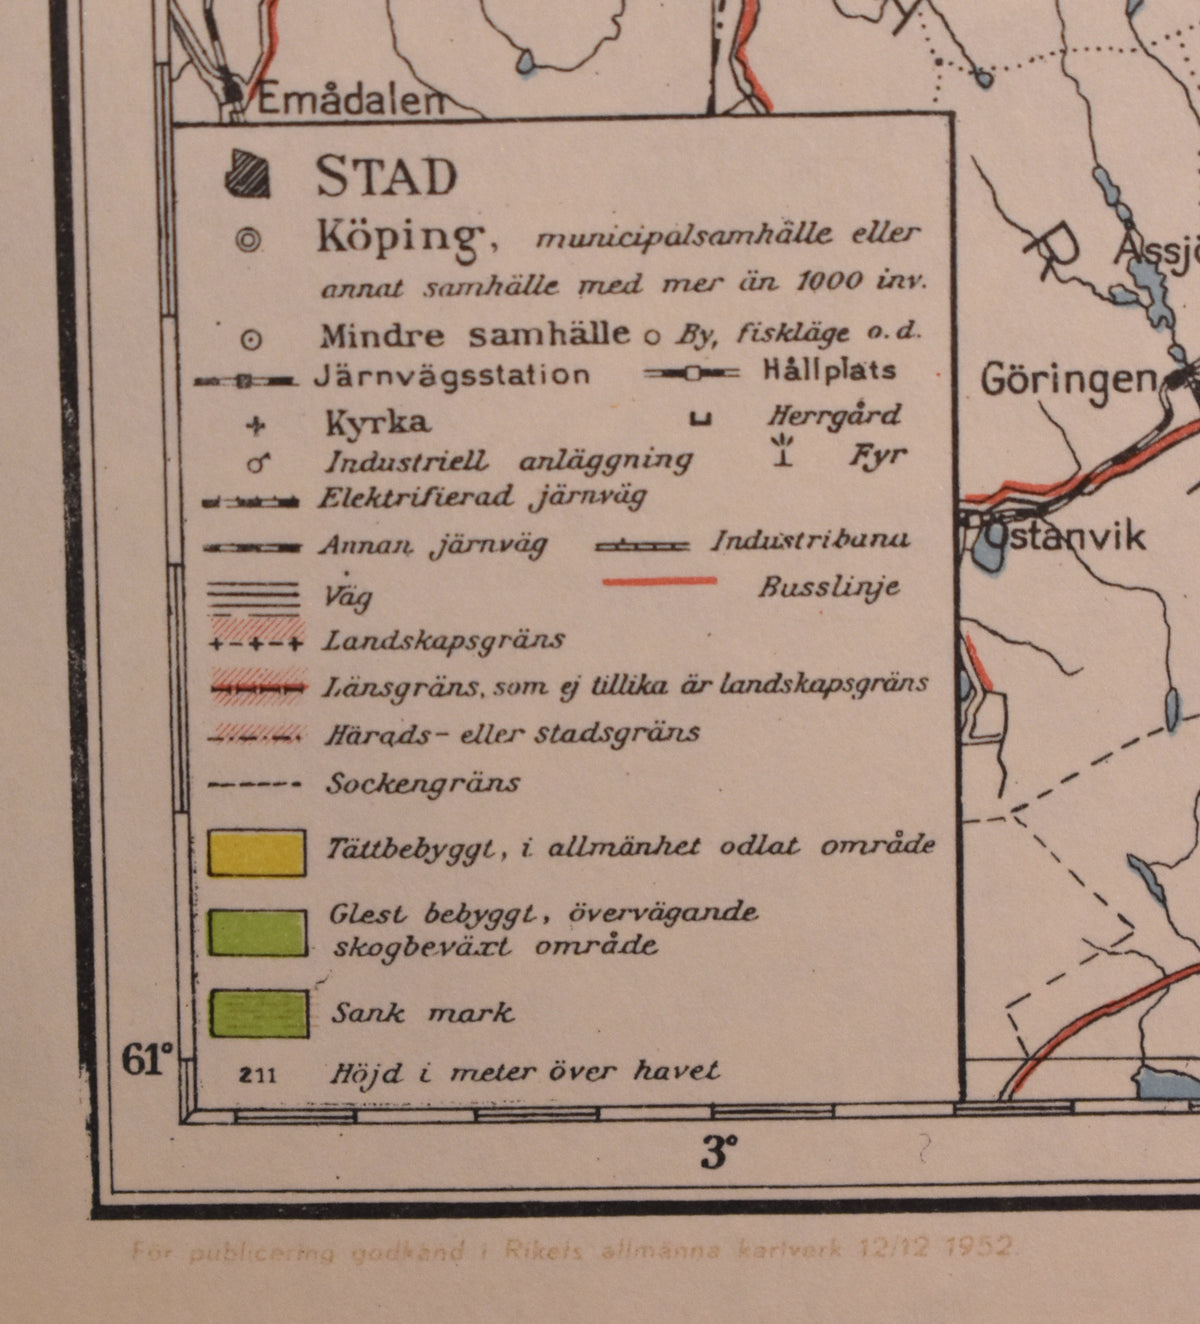 Emådalen
STAD
Köping, municipalsamhälle eller
annat samhälle med mer än 1000 inv.
Mindre samhälle By, fiskläge o.d.
Järnvägsstation Hållplats
Kyrka Herrgård
Industriell anläggning Fyr
Elektrifierad järnväg
Annan järnväg Industribana
Väg Busslinje
Landskapsgräns
Länsgräns, som ej tillika är landskapsgräns
Härads- eller stadsgräns
Sockengräns
Tättbebyggt, i allmänhet odlat område
Glest bebyggt, övervägande
skogbeväxt område
Sank mark
211 Höjd i meter över havet
R
Göringen
Östanvik
61°
3°
För publicering godkänd i Rikets allmänna kartverk 12/12 1952.